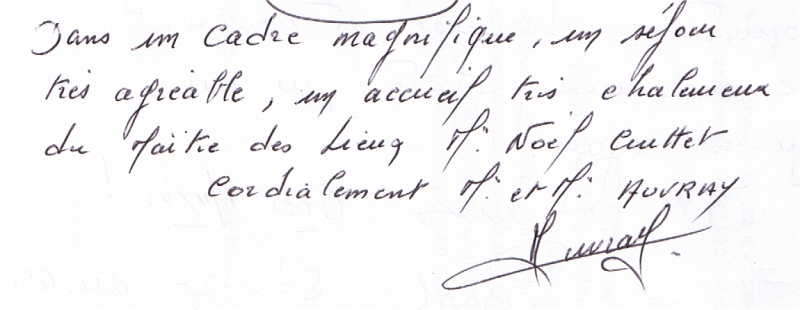 Dans un cadre magnifique, un séjour
très agréable, un accueil très chaleureux
du Maître des Lieux Mr. Noël
Cordialement Mr. et Mr. AUVRAY
Auvray